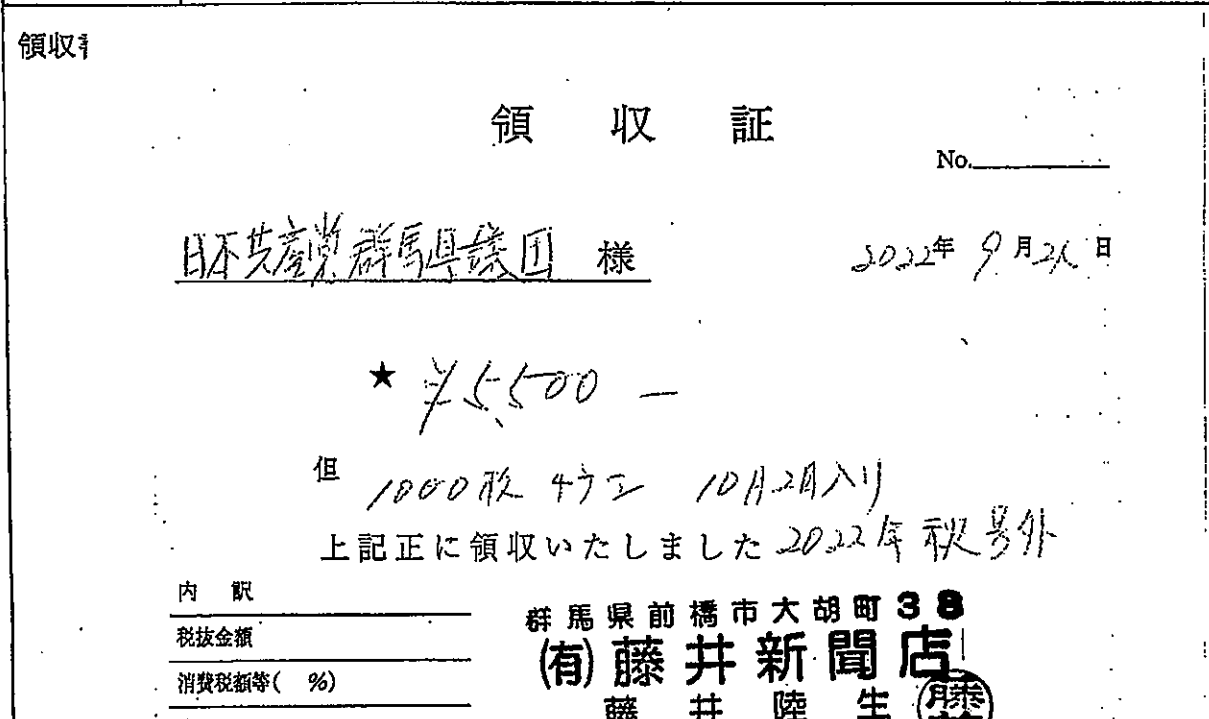 領収
領収証
No.
日本共産党群馬県議団 様
2022年 9月 日
★ ¥5,500 —
但 1000枚 チラシ 10月2日入り
上記正に領収いたしました 2022年 秋号外
内 訳
税抜金額
消費税額等( %)
群馬県前橋市大胡町38
(有)藤井新聞店
藤井陸生
藤